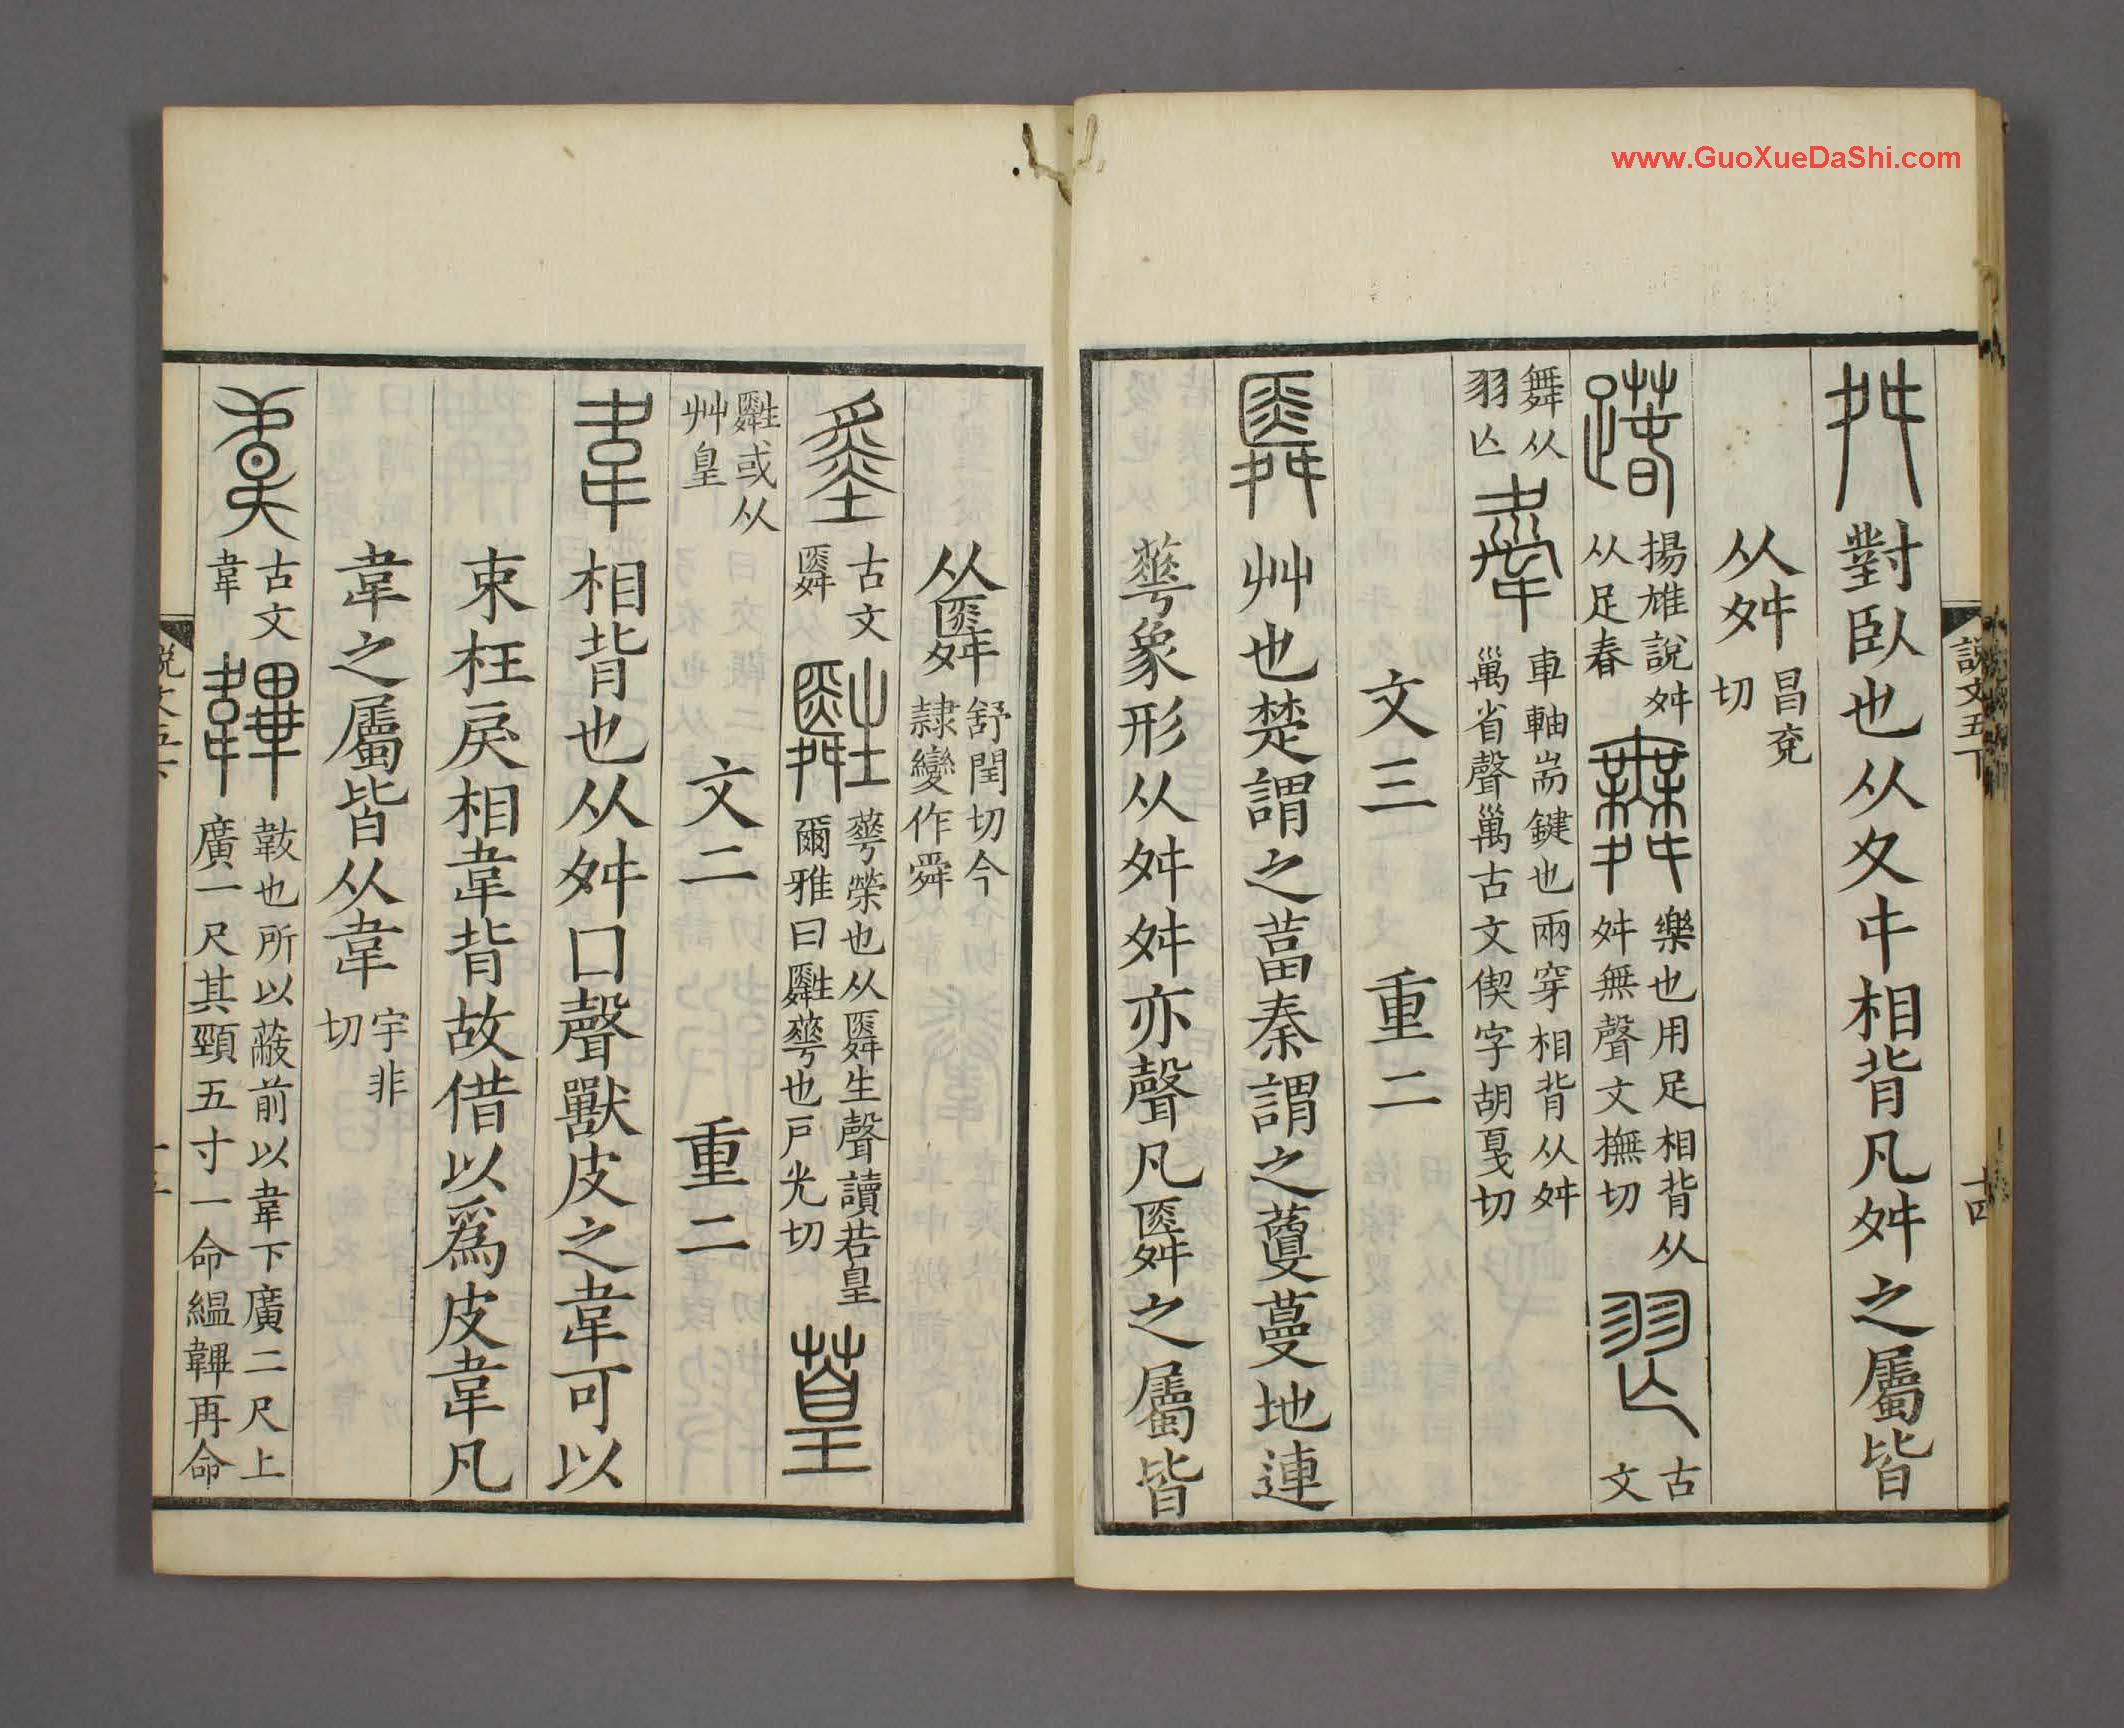 www.GuoXueDaShi.com
說文五下 十四
舛 對臥也从夊㐄相背凡舛之屬皆
从舛 昌兗切
䠢 揚雄說舛从足春 舞 樂也用足相背从舛無聲文撫切 𦐀 古文
舞从羽亾 舝 車軸耑鍵也兩穿相背从舛𥜿省聲𥜿古文偰字胡戛切
文三 重二
䑞 艸也楚謂之葍秦謂之藑蔓地連
蕐象形从舛舛亦聲凡䑞之屬皆
从䑞 舒閏切今隷變作舜
𡐩 古文䑞 䑟 蕐榮也从䑞生聲讀若皇爾雅曰䑟蕐也戸光切 葟
䑟或从艸皇 文二 重二
韋 相背也从舛囗聲獸皮之韋可以
束枉戾相韋背故借以爲皮韋凡
韋之屬皆从韋 宇非切
𡙝 古文韋 韠 韍也所以蔽前以韋下廣二尺上廣一尺其頸五寸一命縕韠再命